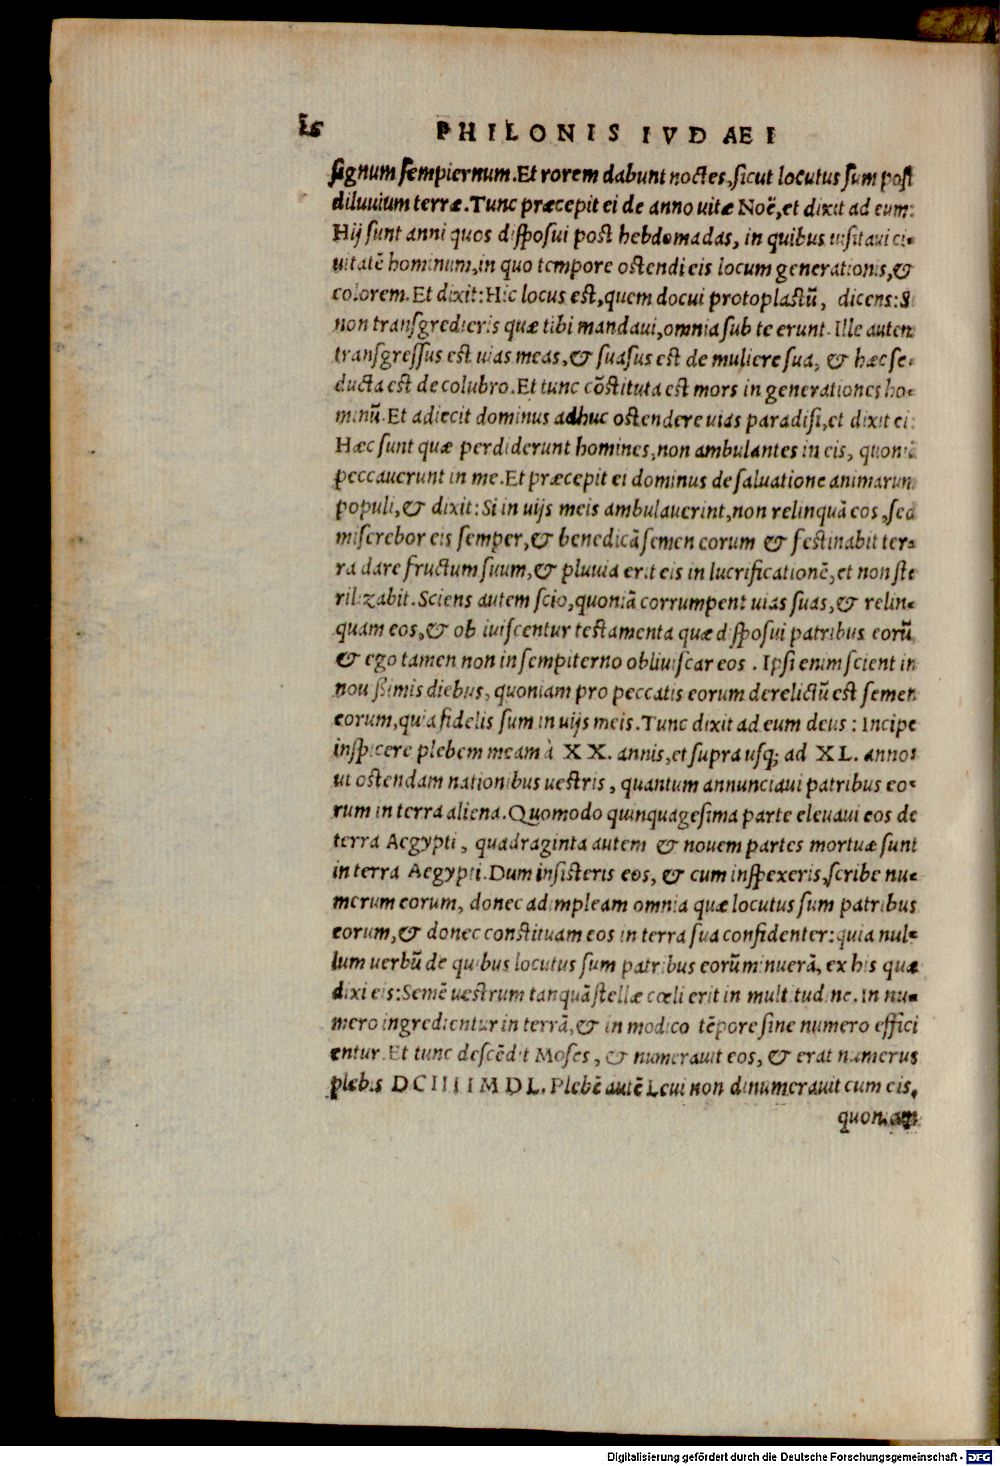 PHILONIS IVDAEI
signum sempiternum. Et rorem dabunt noctes, sicut locutus sum post
diluuium terræ. Tunc præcepit ei de anno uitæ Noë, et dixit ad eum:
Hij sunt anni quos disposui post hebdomadas, in quibus uisitaui ci-
uitatē hominum, in quo tempore ostendi eis locum generationis, &
colorem. Et dixit: Hic locus est, quem docui protoplastū, dicens: Si
non transgredieris quæ tibi mandaui, omnia sub te erunt. Ille autem
transgressus est uias meas, & suasus est de muliere sua, & hæc se-
ducta est de colubro. Et tunc cōstituta est mors in generationes ho-
minū. Et adiecit dominus adhuc ostendere uias paradisi, et dixit ei:
Hæc sunt quæ perdiderunt homines, non ambulantes in eis, quoniā
peccauerunt in me. Et præcepit ei dominus de saluatione animarum
populi, & dixit: Si in uijs meis ambulauerint, non relinquā eos, sed
miserebor eis semper, & benedicā semen eorum & festinabit ter-
ra dare fructum suum, & pluuia erit eis in lucrificationē, et non ste
rilizabit. Sciens autem scio, quoniā corrumpent uias suas, & relin-
quam eos, & obliuiscentur testamenta quæ disposui patribus eorū
& ego tamen non in sempiterno obliuiscar eos. Ipsi enim scient in
nouißimis diebus, quoniam pro peccatis eorum derelictū est semen
eorum, quia fidelis sum in uijs meis. Tunc dixit ad eum deus: Incipe
inspicere plebem meam à XX. annis, et supra usq; ad XL. annos
ut ostendam nationibus uestris, quantum annunciaui patribus eo-
rum in terra aliena. Quomodo quinquagesima parte eleuaui eos de
terra Aegypti, quadraginta autem & nouem partes mortuæ sunt
in terra Aegypti. Dum insisteris eos, & cum inspexeris, scribe nu-
merum eorum, donec adimpleam omnia quæ locutus sum patribus
eorum, & donec constituam eos in terra sua confidenter: quia nul-
lum uerbū de quibus locutus sum patribus eorū minuerā, ex his quæ
dixi eis: Semē uestrum tanquā stellæ cœli erit in multitudine. In nu-
mero ingredientur in terrā, & in modico tēpore sine numero effici
entur. Et tunc descēdit Moses, & numerauit eos, & erat numerus
plebis DCIIII M D L. Plebē autē Leui non dinumerauit cum eis,
quoniam
Digitalisierung gefördert durch die Deutsche Forschungsgemeinschaft - DFG